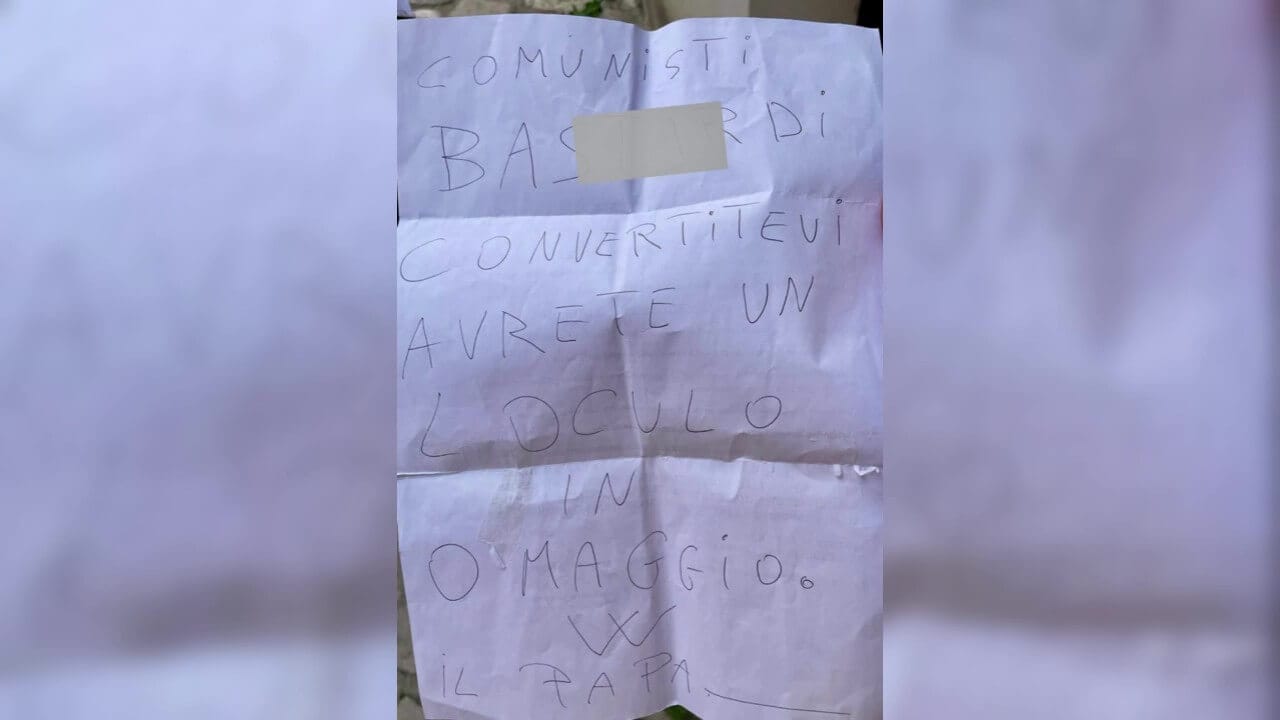 COMUNISTI
BAS RDi
CONVERTITEVI
AVRETE UN
LOCULO
IN
OMAGGIO.
W
IL PAPA.